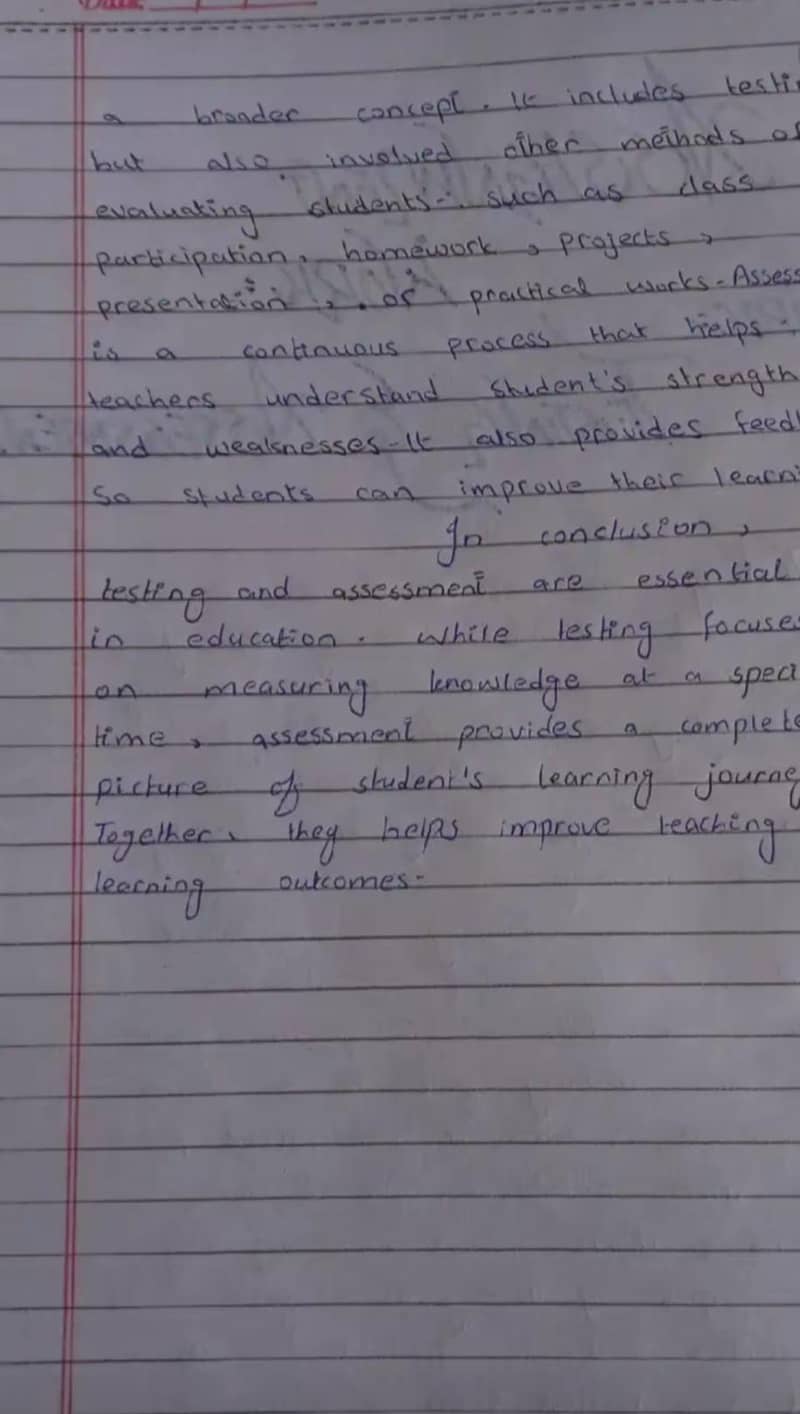 a broader concept. It includes testi
but also involved other methods of
evaluating students such as class
participation, homework, projects,
presentations, or practical works. Assess
is a continuous process that helps
teachers understand student's strength
and weaknesses. It also provides feed
so students can improve their learni
In conclusion,
testing and assessment are essential
in education. While testing focuse
on measuring knowledge at a speci
time, assessment provides a complete
picture of student's learning journey
Together, they helps improve teaching
learning outcomes.